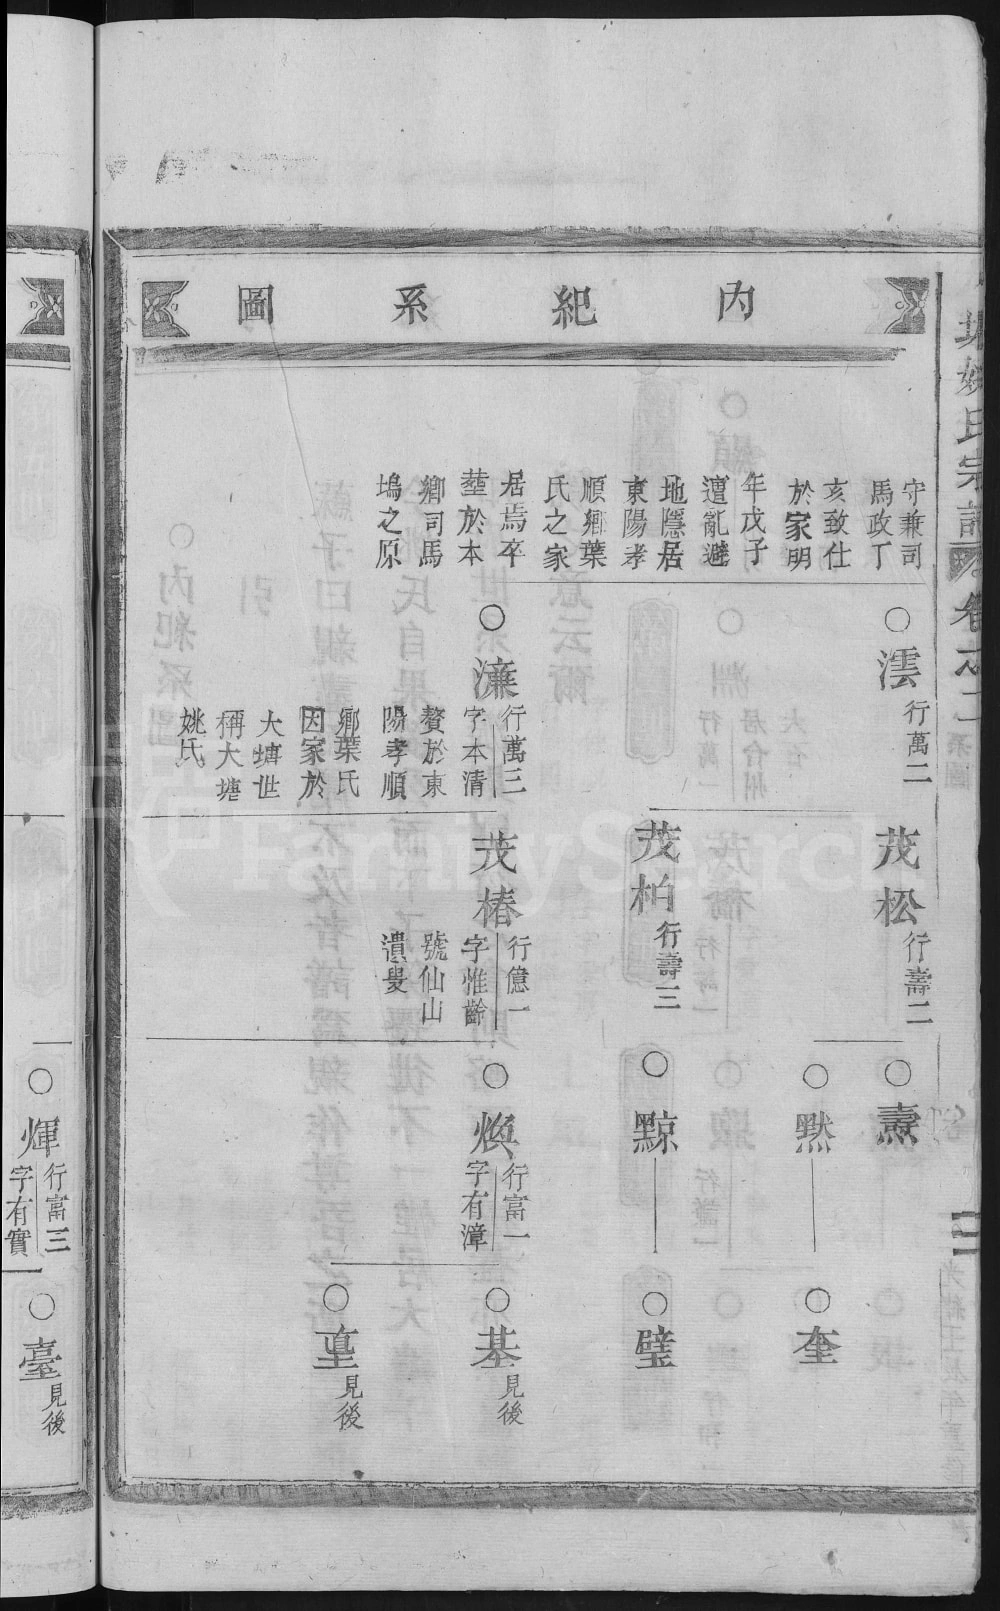 内紀系圖
姚氏宗譜
卷之一系圖
守兼司
馬政丁
亥致仕
於家明
年戊子
遭亂避
地隱居
東陽孝
順鄉葉
氏之家
居焉卒
塟於本
鄉司馬
塢之原
○澐
行萬二
○濂
行萬三
字本清
贅於東
陽孝順
鄉葉氏
因家於
大塘世
稱大塘
姚氏
茂松
行壽二
茂柏
行壽三
茂椿
行億一
字惟齡
號仙山
遺叟
○燾
○黙
○黥
○煥
行富一
字有漳
○奎
○壁
○基
見後
○堇
見後
○煇
行富三
字有實
○臺
見後
FamilySearch